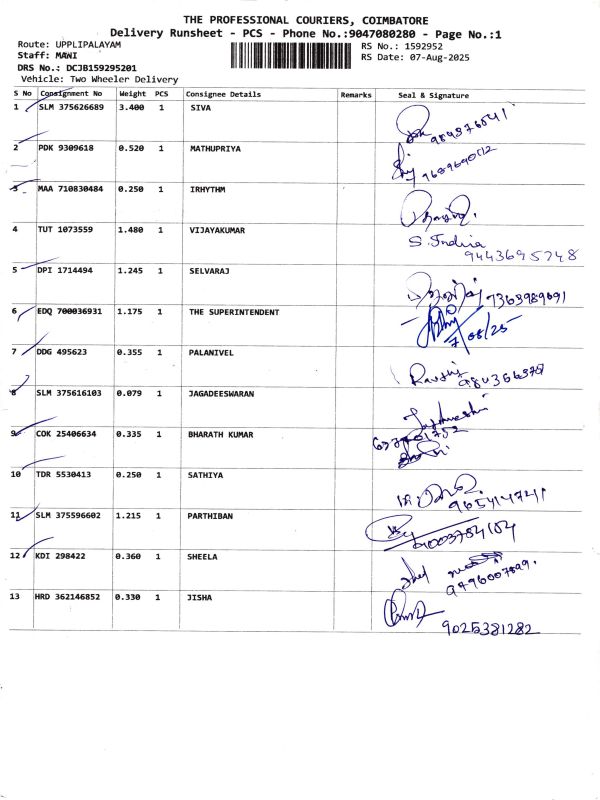 THE PROFESSIONAL COURIERS, COIMBATORE
Delivery Runsheet - PCS - Phone No.:9047080280 - Page No.:1
Route: UPPLIPALAYAM RS No.: 1592952
Staff: MANI RS Date: 07-Aug-2025
DRS No.: DCJB159295201
Vehicle: Two Wheeler Delivery
S No Consignment No Weight PCS Consignee Details Remarks Seal & Signature
1 SLM 375626689 3.400 1 SIVA
2 PDK 9309618 0.520 1 MATHUPRIYA
3 MAA 710830484 0.250 1 IRHYTHM
4 TUT 1073559 1.480 1 VIJAYAKUMAR S. Indira
9443695748
5 DPI 1714494 1.245 1 SELVARAJ
7363989691
6 EDQ 700036931 1.175 1 THE SUPERINTENDENT
7/08/25
7 DDG 495623 0.355 1 PALANIVEL
8 SLM 375616103 0.079 1 JAGADEESWARAN
9 COK 25406634 0.335 1 BHARATH KUMAR
10 TDR 5530413 0.250 1 SATHIYA
965414741
11 SLM 375596602 1.215 1 PARTHIBAN
9003784104
12 KDI 298422 0.360 1 SHEELA
9496007899.
13 HRD 362146852 0.330 1 JISHA
9025381282